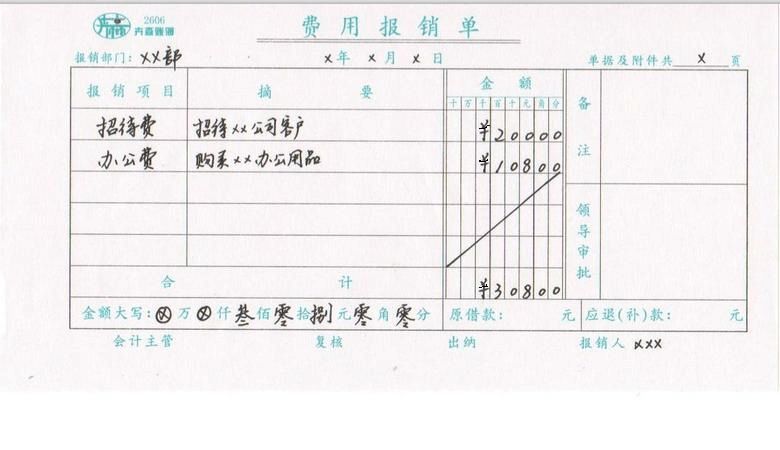 2606
卉森账簿
费用报销单
报销部门：××部 ×年 ×月 ×日 单据及附件共 × 页
报销项目 摘要 金额 备注
十 万 千 百 十 元 角 分
招待费 招待××公司客户 ¥20000
办公费 购买××办公用品 ¥10800
领导审批
合计 ¥30800
金额大写：⊗万⊗仟叁佰零拾捌元零角零分 原借款： 元 应退(补)款： 元
会计主管 复核 出纳 报销人 ×××